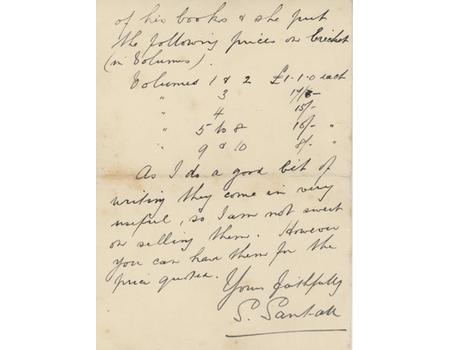 of his books & she put
the following prices on Cricket
(in Volumes).
Volumes 1 & 2 £1-1-0 each
" 3 17/6-
" 4 15/-
" 5 to 8 16/- "
" 9 & 10 8/- "
As I do a good bit of
writing they come in very
useful, so I am not sweet
on selling them. However
you can have them for the
price quoted.
Yours faithfully
S. Santall